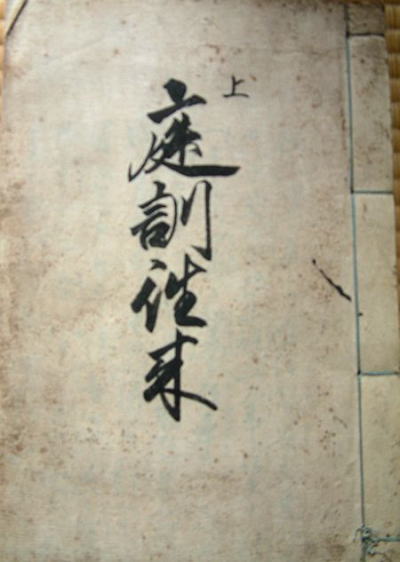 上
庭訓往来